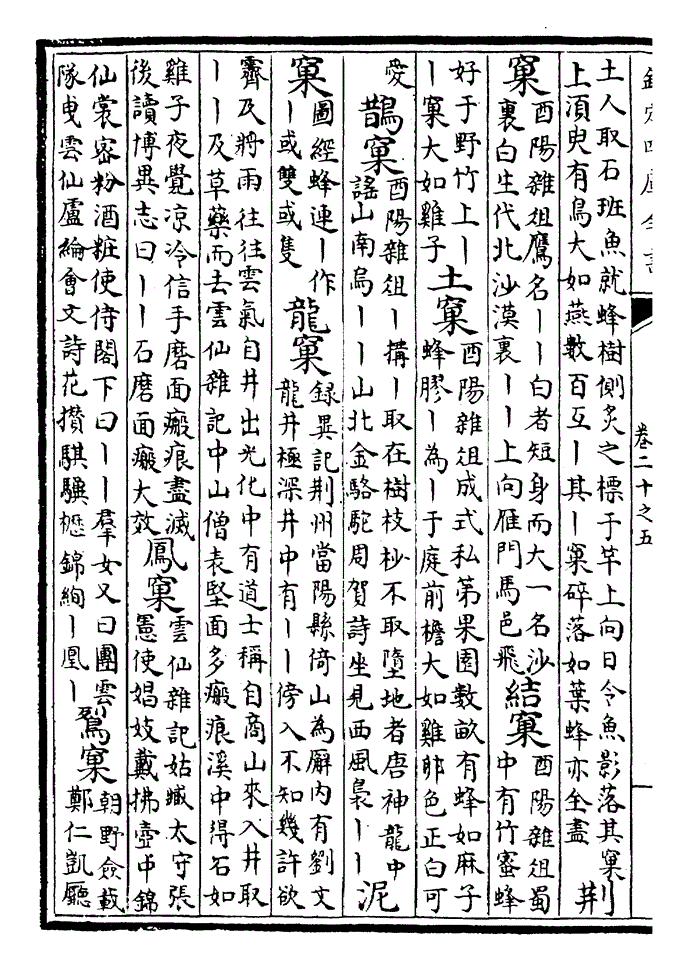 欽定四庫全書
卷二十之五
土人取石班魚就蜂樹側炙之標于竿上向日令魚影落其窠
上須臾有鳥大如燕數百互丨其丨窠碎落如葉蜂亦全盡
荆
窠
酉陽雜俎鷹名丨丨白者短身而大一名沙
裏白生代北沙漠裏丨丨上向雁門馬邑飛
結窠
酉陽雜俎蜀
中有竹蜜蜂
好于野竹上丨
丨窠大如雞子
土窠
酉陽雜俎成式私第果園數畝有蜂如麻子
蜂膠丨為丨于庭前檐大如雞卵色正白可
愛
鵲窠
酉陽雜俎丨搆丨取在樹枝杪不取墮地者唐神龍中
謡山南烏丨丨山北金駱駝周賀詩坐見西風裊丨丨
泥
窠
圖經蜂連丨作
丨或雙或隻
龍窠
録異記荆州當陽縣倚山為廨内有劉文
龍井極深井中有丨丨傍入不知幾許欲
霽及將雨往往雲氣自井出光化中有道士稱自商山來入井取
丨丨及草藥而去雲仙雜記中山僧表堅面多瘢痕溪中得石如
雞子夜覺凉冷信手磨面瘢痕盡滅
後讀博異志曰丨丨石磨面瘢大效
鳳窠
雲仙雜記姑臧太守張
憲使娼妓戴拂壺巾錦
仙裳密粉酒粧使侍閣下曰丨丨羣女又曰團雲
隊曳雲仙盧綸會文詩花攢騏驥櫪錦絢丨凰丨
鴷窠
朝野僉載
鄭仁凱廳